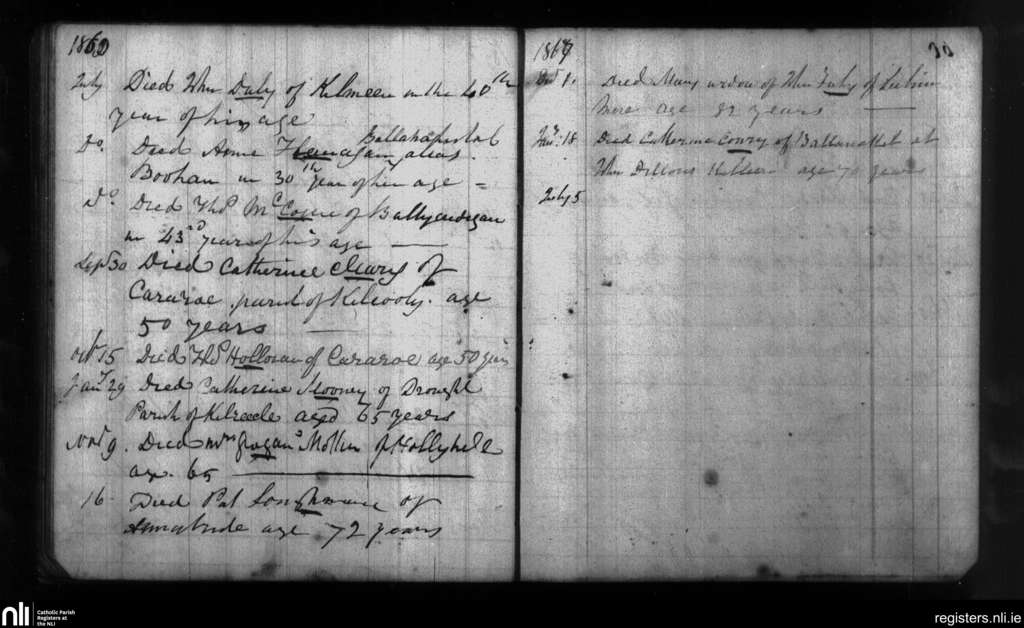 1860
July Died Wm Daly of Kilmeen in the 40th
year of his age
Do. Died Anne Flanagan alias
Boohan in 30th year of her age =
Do. Died Thos McCogue of
in 43rd year of his age
Sept 30 Died Catherine Cleary of
Cararoe parish of Kilcooly. age
50 years
Oct 15 Died Thos Holloran of Cararoe age 50 years
Jany 29 Died Catherine Mooney of
Parish of aged 65 years
Novr 9. Died Mrs Grogan's Mother of Hollyhill
age. 65
16 Died Pat Loughnane of
age 72 years
186 30
Died Mary widow of Wm Fahy of
more age 82 years
Jany 18 Died Catherine Conry of at
Wm Dillons age 70 years
July 5
nli Catholic Parish
Registers at
the NLI
registers.nli.ie